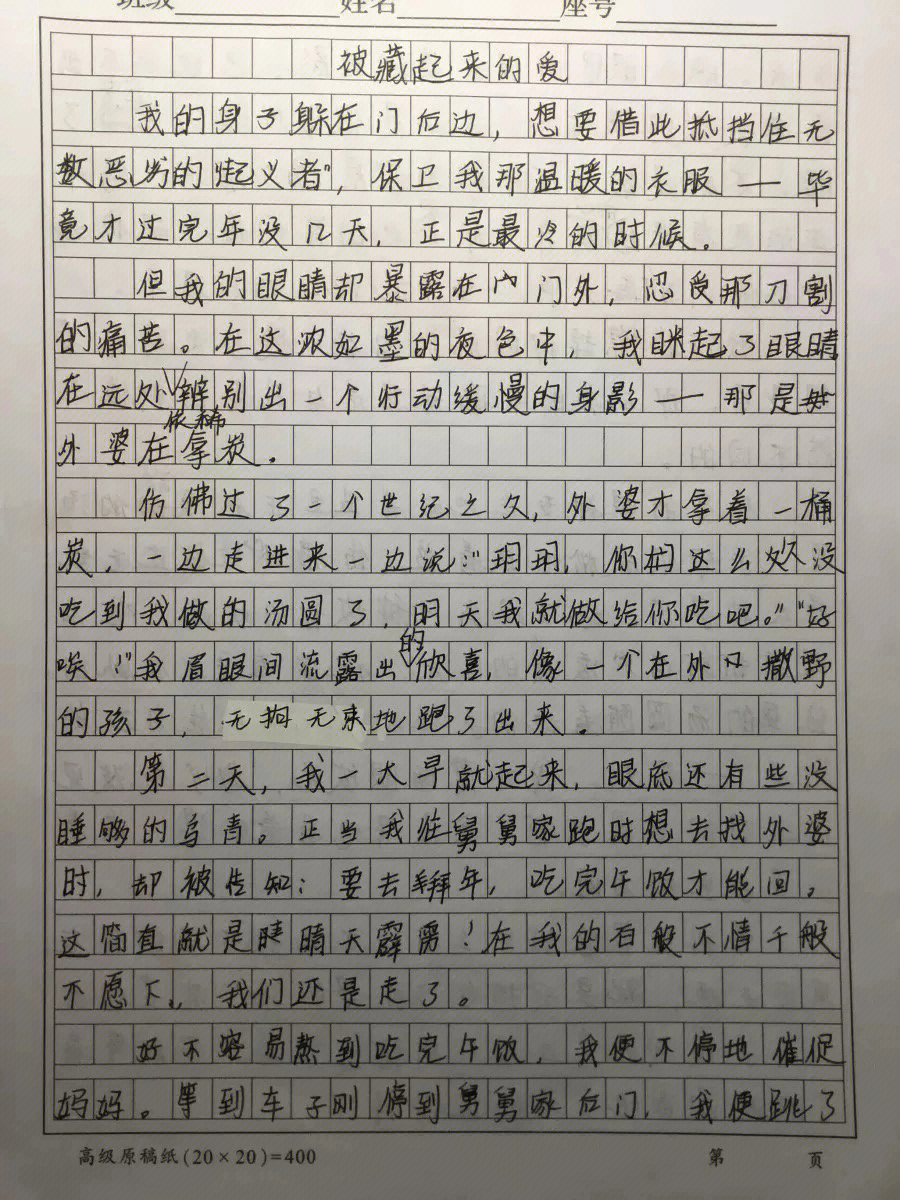 班级 姓名 座号
被藏起来的爱
我的身子躲在门后边，想要借此抵挡住无
数恶劣的“起义者”，保卫我那温暖的衣服——毕
竟才过完年没几天，正是最冷的时候。
但我的眼睛却暴露在门外，忍受那刀割
的痛苦。在这浓如墨的夜色中，我眯起了眼睛
在远处依稀辨别出一个行动缓慢的身影——那是
外婆在拿炭。
仿佛过了一个世纪之久，外婆才拿着一桶
炭，一边走进来一边说：“玥玥，你这么久没
吃到我做的汤圆了，明天我就做给你吃吧。”“好
唉！”我眉眼间流露出的欣喜，像一个在外撒野
的孩子，无拘无束地跑了出来。
第二天，我一大早就起来，眼底还有些没
睡够的乌青。正当我往舅舅家跑时想去找外婆
时，却被告知：要去拜年，吃完午饭才能回。
这简直就是晴天霹雳！在我的百般不情千般
不愿下，我们还是走了。
好不容易熬到吃完午饭，我便不停地催促
妈妈。等到车子刚停到舅舅家后门，我便跳了
高级原稿纸(20×20)=400 第 页